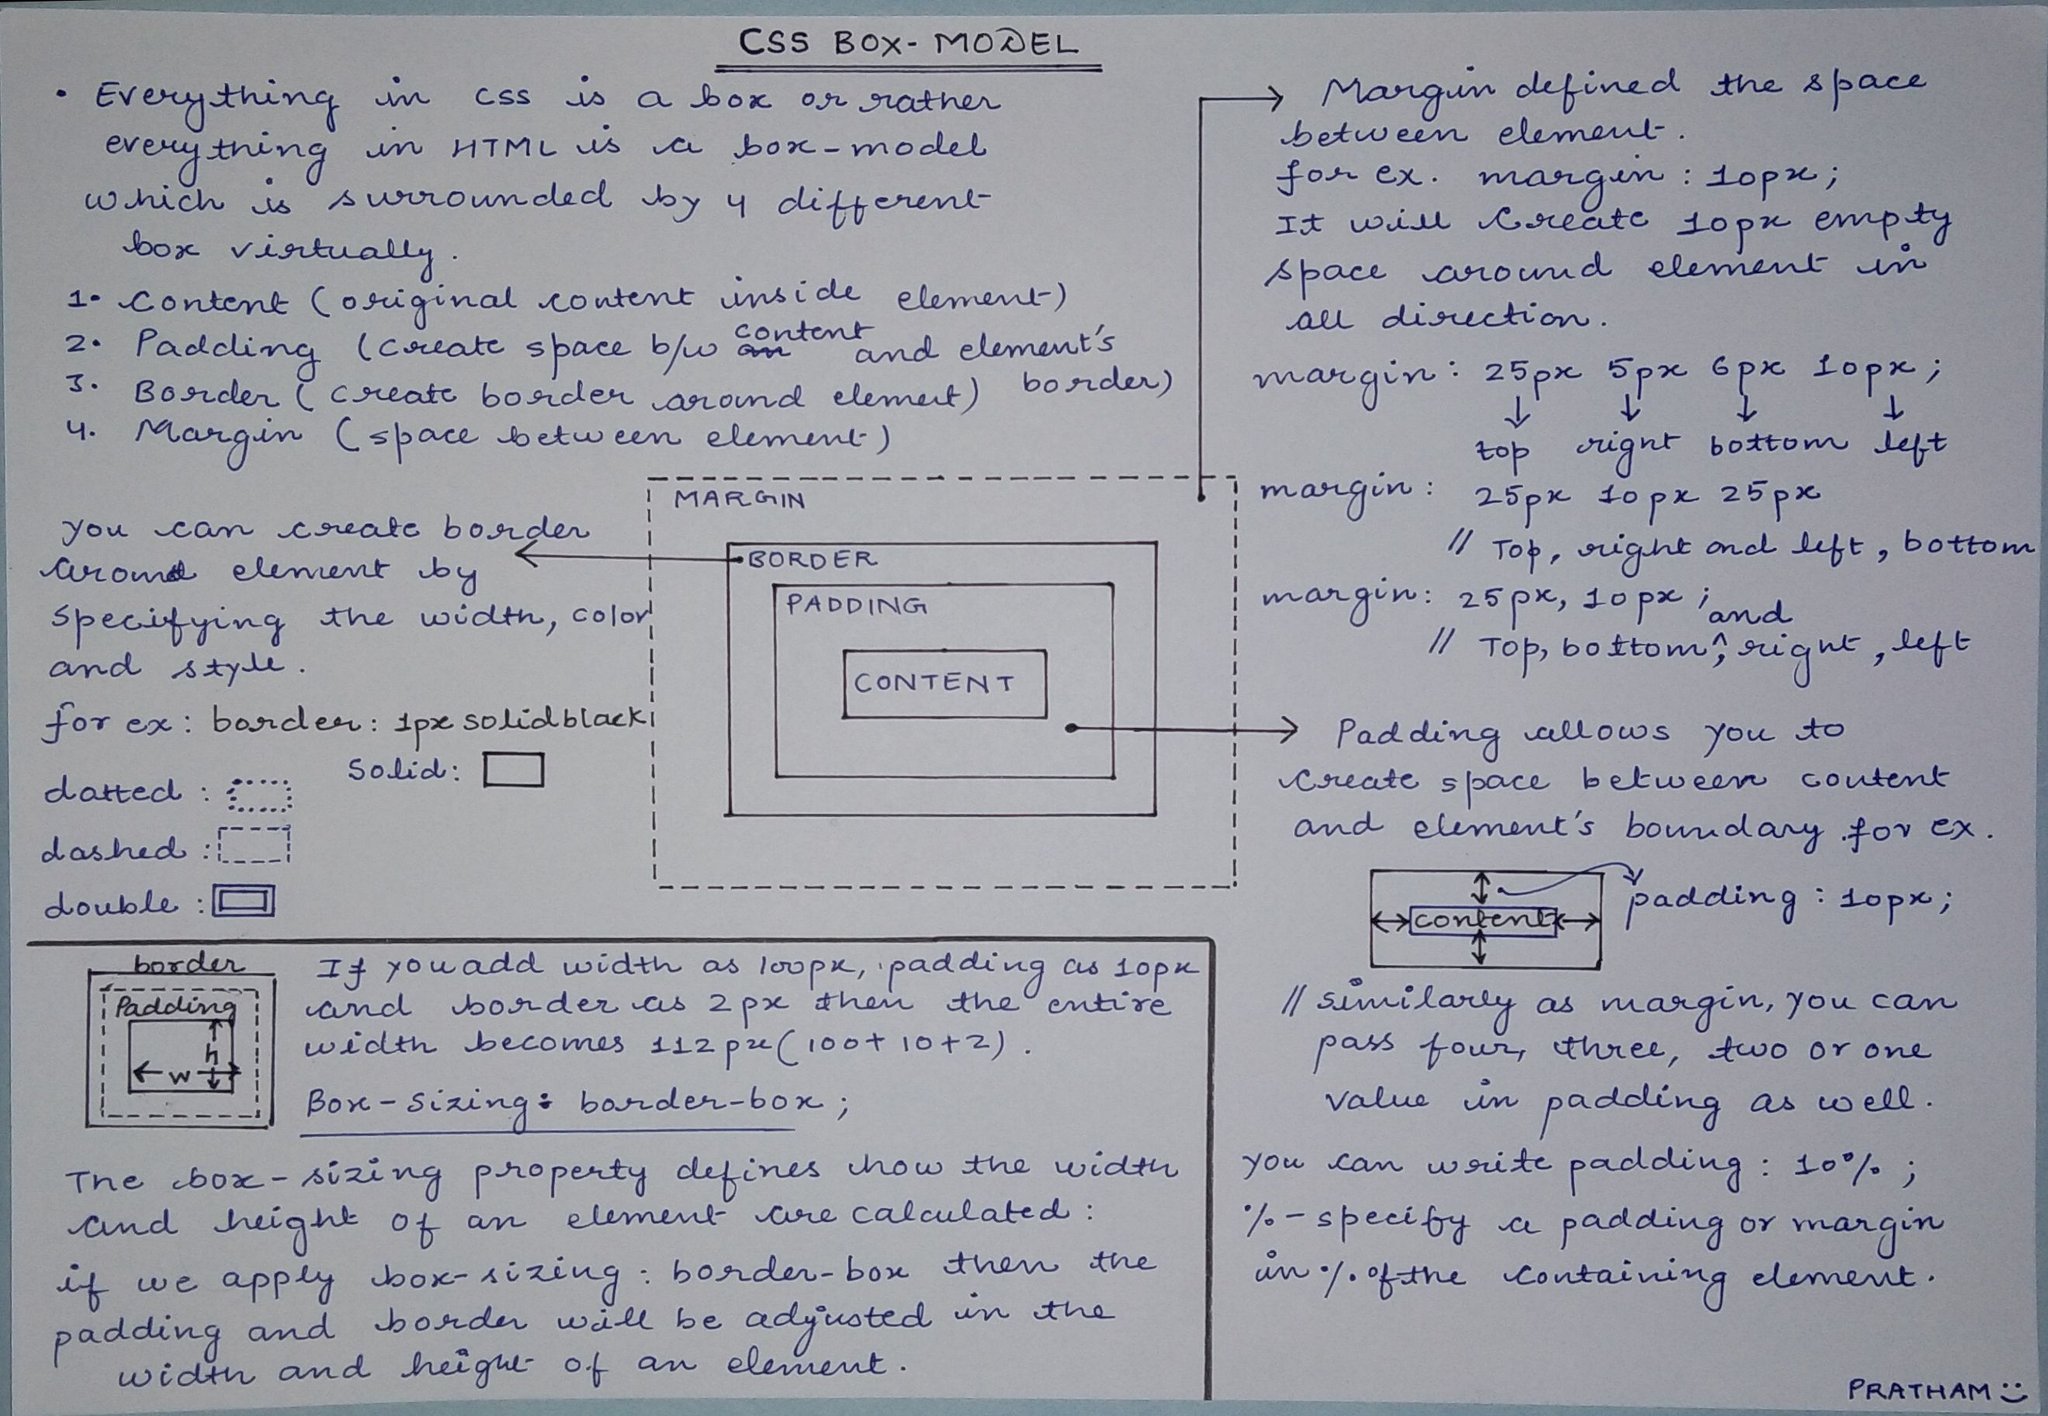 CSS BOX-MODEL
• Everything in css is a box or rather
everything in HTML is a box-model
which is surrounded by 4 different
box virtually.
1. Content (original content inside element)
2. Padding (create space b/w content and element's
border)
3. Border (create border around element)
4. Margin (space between element)
you can create border
around element by
specifying the width, color
and style.
for ex: border: 1px solid black
Solid:
dotted :
dashed :
double :
MARGIN
BORDER
PADDING
CONTENT
Margin defined the space
between element.
for ex. margin : 10px;
It will Create 10px empty
space around element in
all direction.
margin: 25px 5px 6px 10px;
top right bottom left
margin: 25px 10px 25px
// Top, right and left, bottom
margin: 25px, 10px ;
// Top, bottom and ; right, left
Padding allows you to
Create space between content
and element's boundary for ex.
content
padding : 10px;
// similarly as margin, you can
pass four, three, two or one
value in padding as well.
you can write padding : 10% ;
% - specify a padding or margin
in % of the containing element.
border
Padding
h
w
If you add width as 100px, padding as 10px
and border as 2px then the entire
width becomes 112px (100+10+2).
Box-sizing: border-box;
The box-sizing property defines how the width
and height of an element are calculated:
if we apply box-sizing: border-box then the
padding and border will be adjusted in the
width and height of an element.
PRATHAM